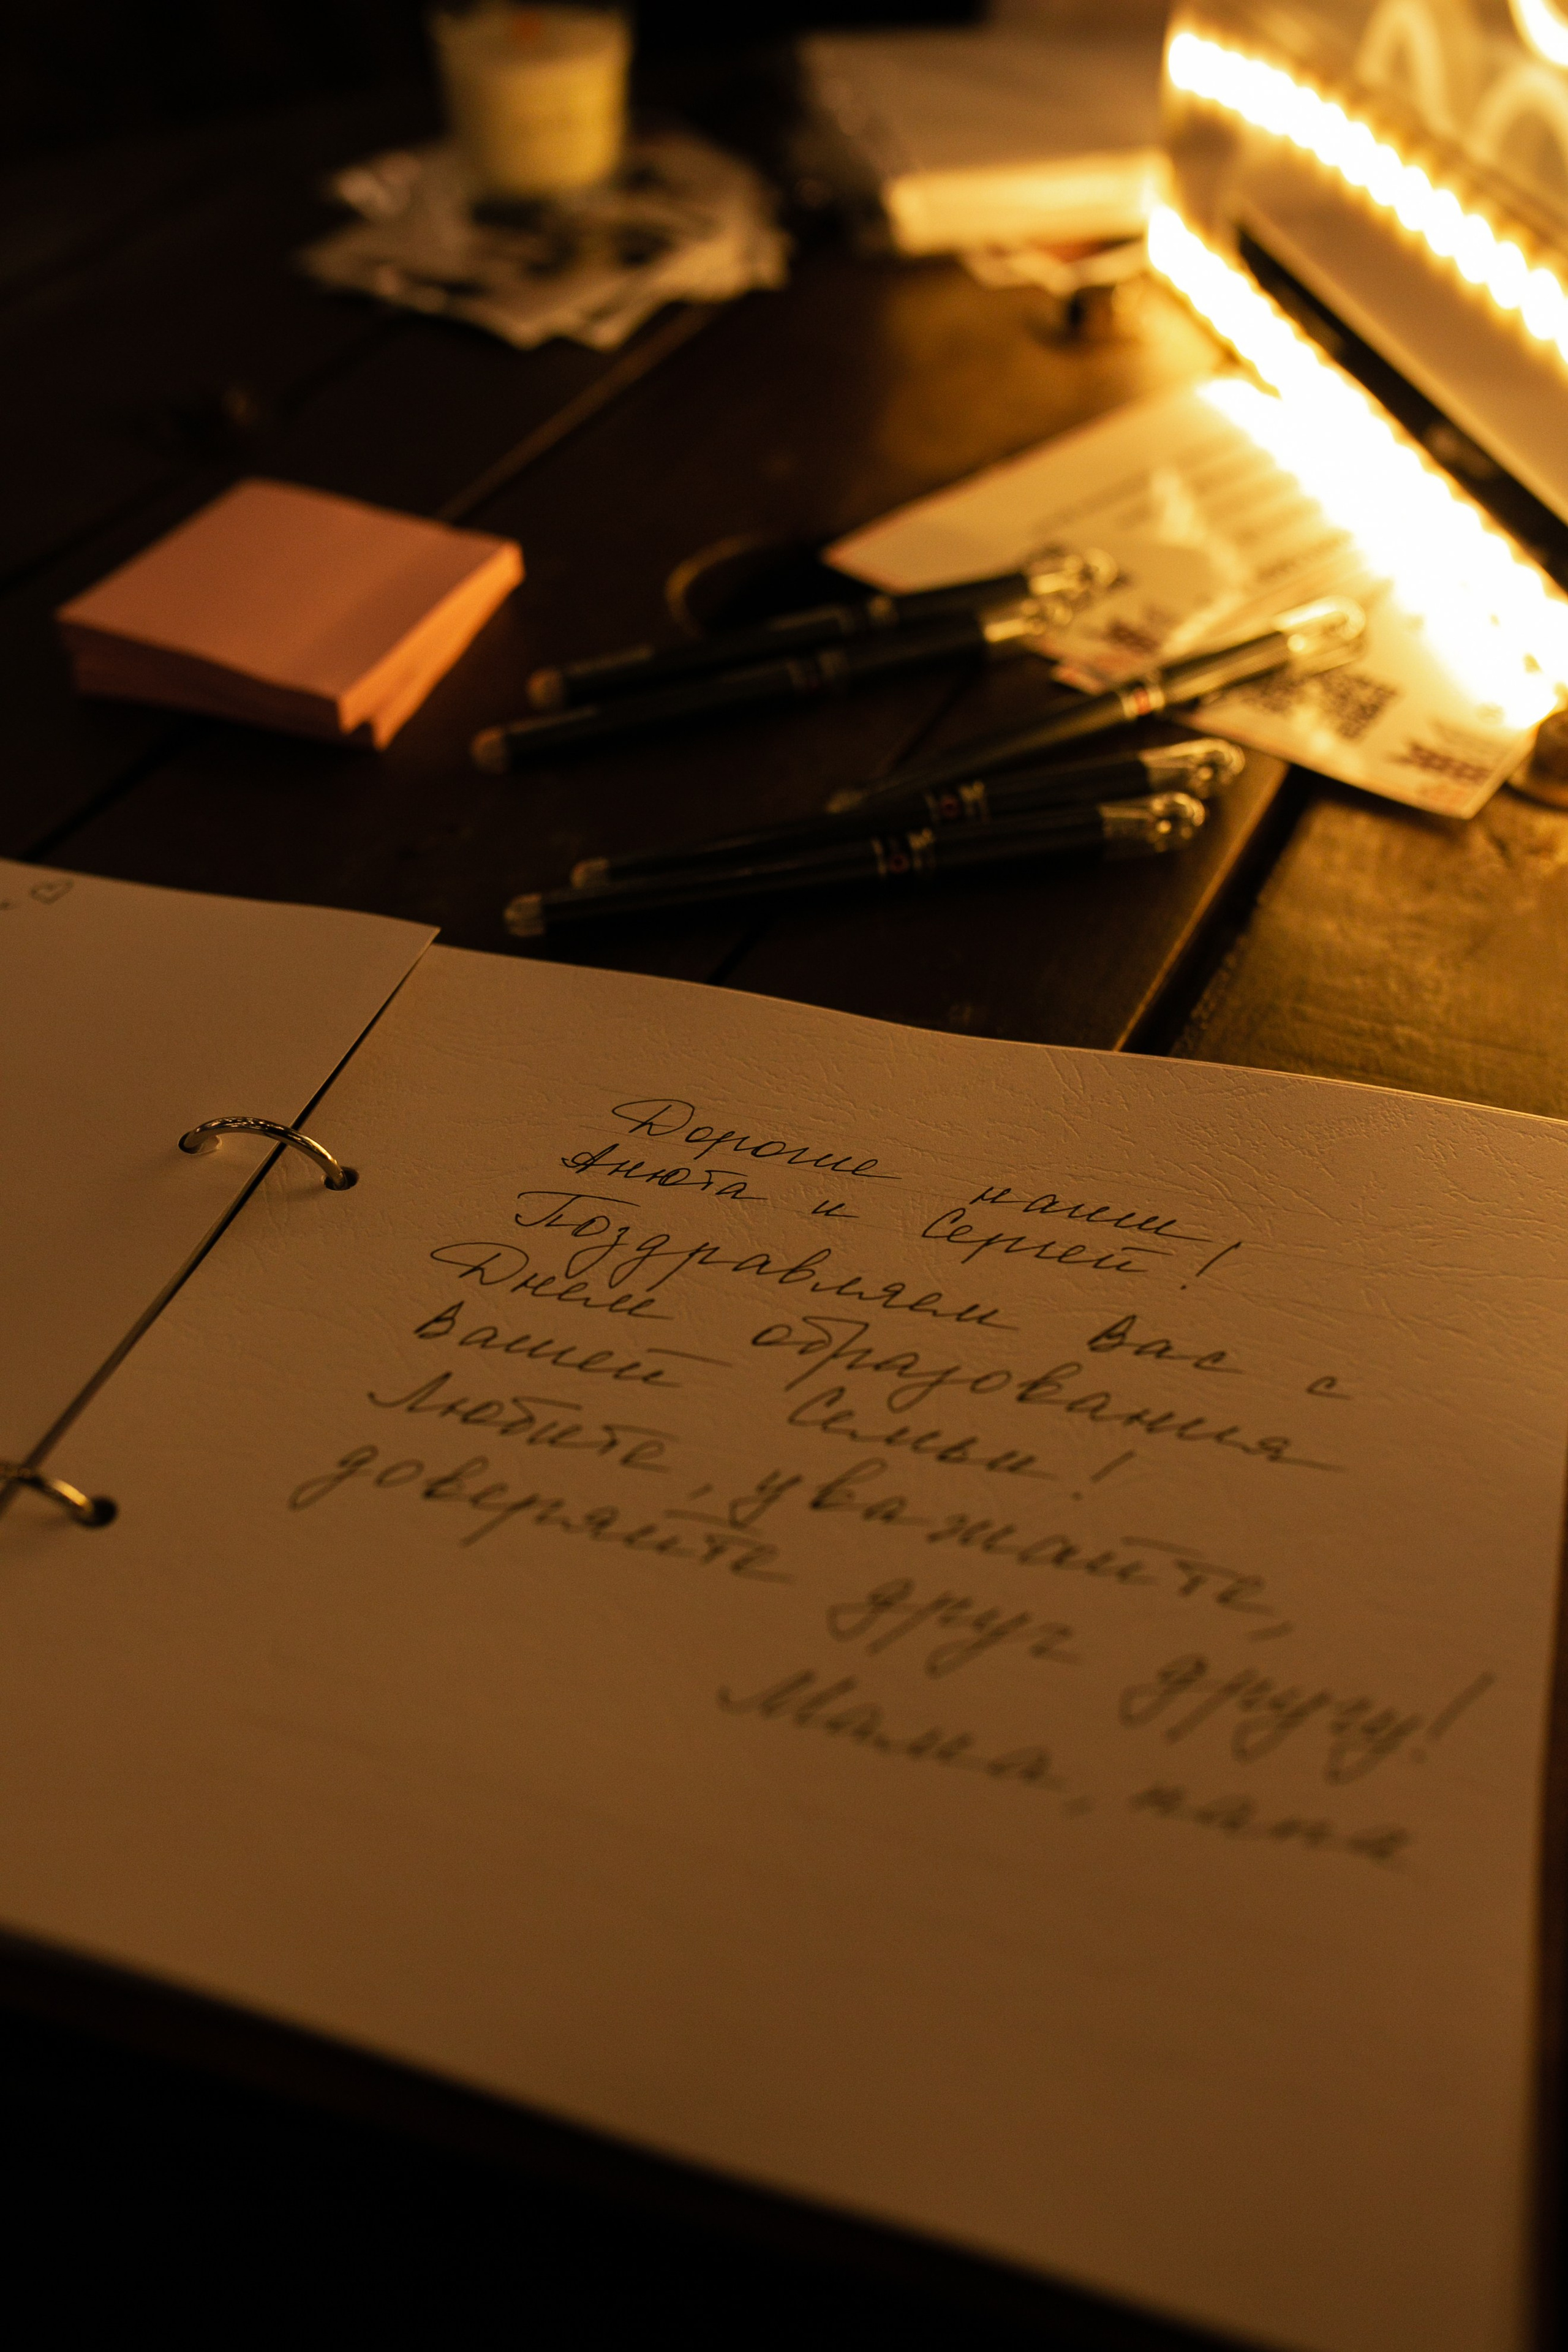 Дорогие наши!
Анюта и Сергей!
Поздравляем Вас с
Днем образования
Вашей Семьи!
Любите, уважайте,
доверяйте друг другу!
Мама, папа